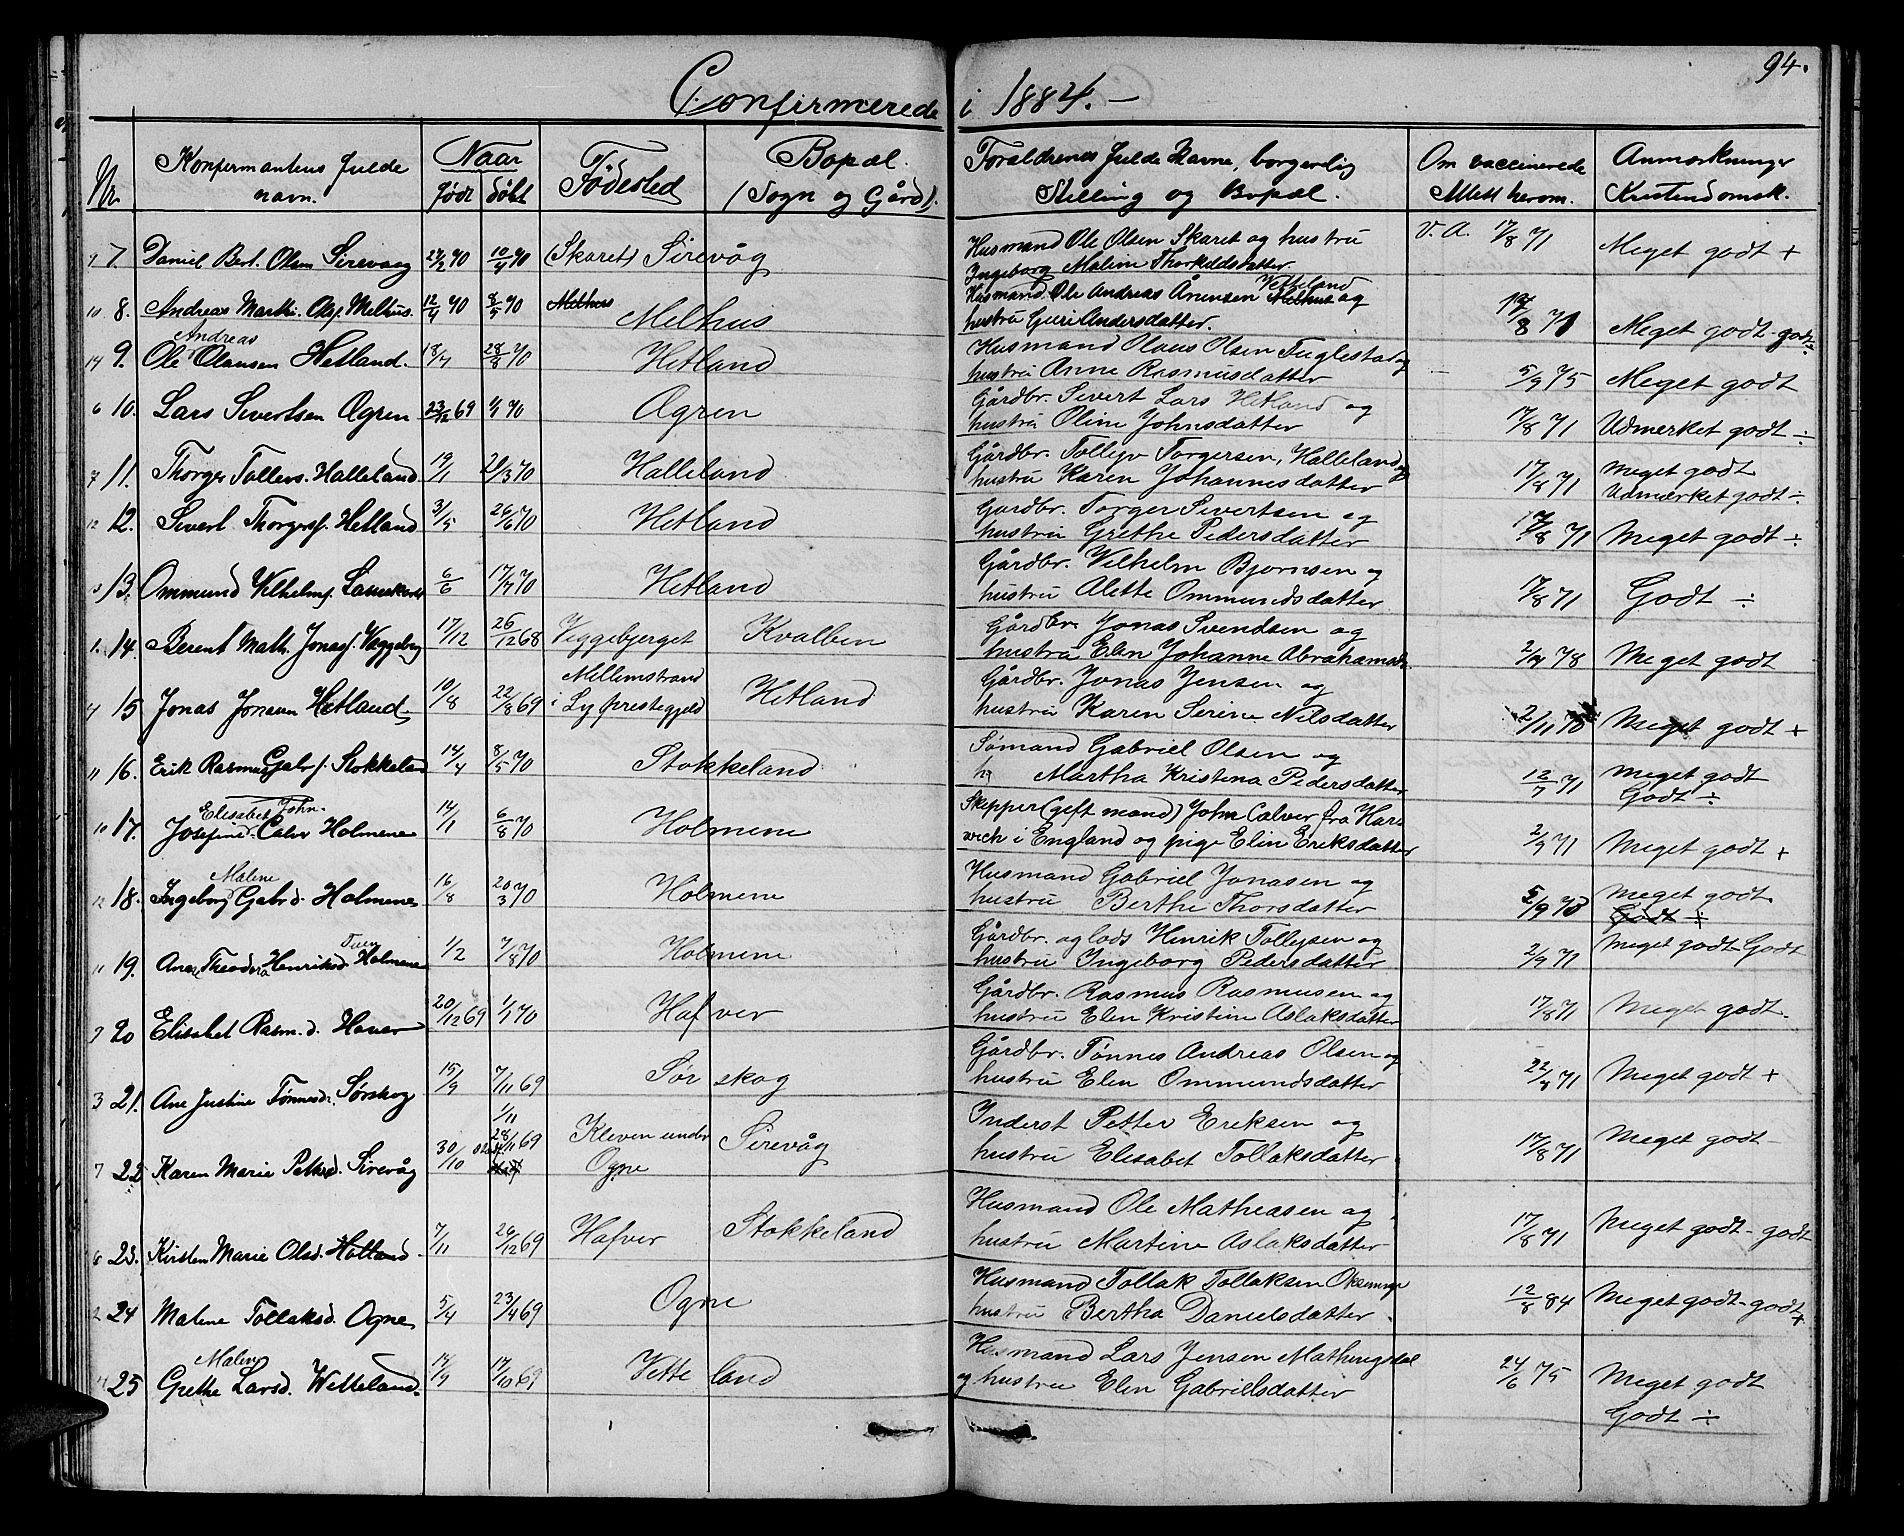 94.
Confirmerede i 1884. —
Nr. Konfirmantens fulde navn. Naar født døbt Fødested Bopæl. (Sogn og Gård). Forældrenes fulde Navne, borgerlig Stilling og Bopæl. Om vaccinerede Attest herom. Anmærkninger Kristendomsk.
7. Daniel Bert. Olsen Sirevaag 27/2 70 10/4 70 (Skaret) Sirevåg Husmand Ole Olsen Skaret og hustru V. A. 17/8 71 Meget godt +
Ingeborg Maline Thorkeldsdatter
10 8. Andreas Marthi. Olsf. Melhus. 12/4 70 8/5 70 Melhus Husmand Ole Andreas Ånensen Melhus Vetteland og 17/8 71 Meget godt - godt ÷
hustru Guri Andersdatter.
14 9. Ole Andreas Olausen Hetland. 18/7 28/8 70 Hetland Husmand Olaus Olsen Fuglestad og 5/9 75 Meget godt
hustru Anne Rasmusdatter
6 10. Lars Sivertsen Ogren 23/12 69 1/1 70 Ogren Gårdbr. Sivert Lars Hetland og 17/8 71 Udmerket godt ÷
hustru Oline Johnsdatter
7 11. Thorger Tollevs. Halleland 19/1 20/3 70 Halleland Gårdbr. Tollejv Torgersen, Halleland og 17/8 71 Meget godt
hustru Karen Johannesdatter Udmærket godt ÷
12 12. Sivert Thorgersf. Hetland 31/5 26/6 70 Hetland Gårdbr. Torger Sivertsen og 17/8 71 Meget godt ÷
hustru Grethe Pedersdatter
13. Ommund Vilhelmsf. 6/6 17/7 70 Hetland Gårdbr. Vilhelm Bjørnsen og 17/8 71 Godt ÷
hustru Alette Ommundsdatter
1. 14. Berent Math. Jonasf. Veggeberg 17/12 26/12 68 Veggebjerget Kvalben Gårdbr. Jonas Svendsen og 2/9 78 Meget godt
hustru Elen Johanne Abrahamsdtr
4 15 Jonas Jonsen Hetland 10/8 22/8 69 Mellemstrand i Ly præstegjeld Hetland Gårdbr. Jonas Jensen og 2/11 70 Meget godt +
hustru Karen Serine Nilsdatter
11 16. Erik Rasmus Gabr f. Stokkeland 14/4 8/5 70 Stokkeland Sømand Gabriel Olsen og 12/7 71 Meget godt
h Martha Kristina Pedersdatter Godt ÷
10 17. Josefine Elisabet John-d. Calver Holmene 14/1 6/8 70 Holmene Skipper (gift mand) John Calver fra Har- 2/9 71 Meget godt +
wich i England og pige Elin Eriksdatter
12 18. Ingeborg Malene Gabrd. Holmene 16/8 20/3 70 Holmene Husmand Gabriel Jonasen og 5/9 73 Meget godt
hustru Berthe Thorsdatter Godt ÷
11 19. Ane Theodora Henriksd. Tuen Holmene 1/2 7/8 70 Holmene Gårdbr. og lods Henrik Tollefsen og 2/9 71 Meget godt - Godt
hustru Ingeborg Pedersdatter
9 20 Elisabet Rasm.d. Haver 20/12 69 1/1 70 Hafver Gårdbr. Rasmus Rasmusen og 17/8 71 Meget godt -
hustru Elen Kristine Aslaksdatter
3 21. Ane Justine Tønnesdr. Sørskog 15/9 7/11 69 Sørskog Gårdbr. Tønnes Andreas Olsen og 22/9 71 Meget godt +
hustru Elen Ommundsdatter
7 22 Karen Marie Pettersd. Sirevåg 30/10 1/11 28/11 69 Kleven under Ogne Sirevåg Inderst Petter Eriksen og 17/8 71 Meget godt -
hustru Elisabet Tollaksdatter
8 23. Kirsten Marie Olsd. Holland 7/11 26/12 69 Hafver Stokkeland Husmand Ole Matheasen og 17/8 71 Meget godt - godt
hustru Martine Aslaksdatter
2 24 Malene Tollaksd. Ogne 5/4 23/4 69 Ogne Husmand Tollak Tollaksen og 12/8 84 Meget godt - godt +
hustru Bertha Danielsdatter
25 Grethe Malene Larsd. Wetteland. 14/9 17/10 69 Vetteland Husmand Lars Jensen Mathingsdal 24/6 75 Meget godt
og hustru Elen Gabrielsdatter Godt ÷